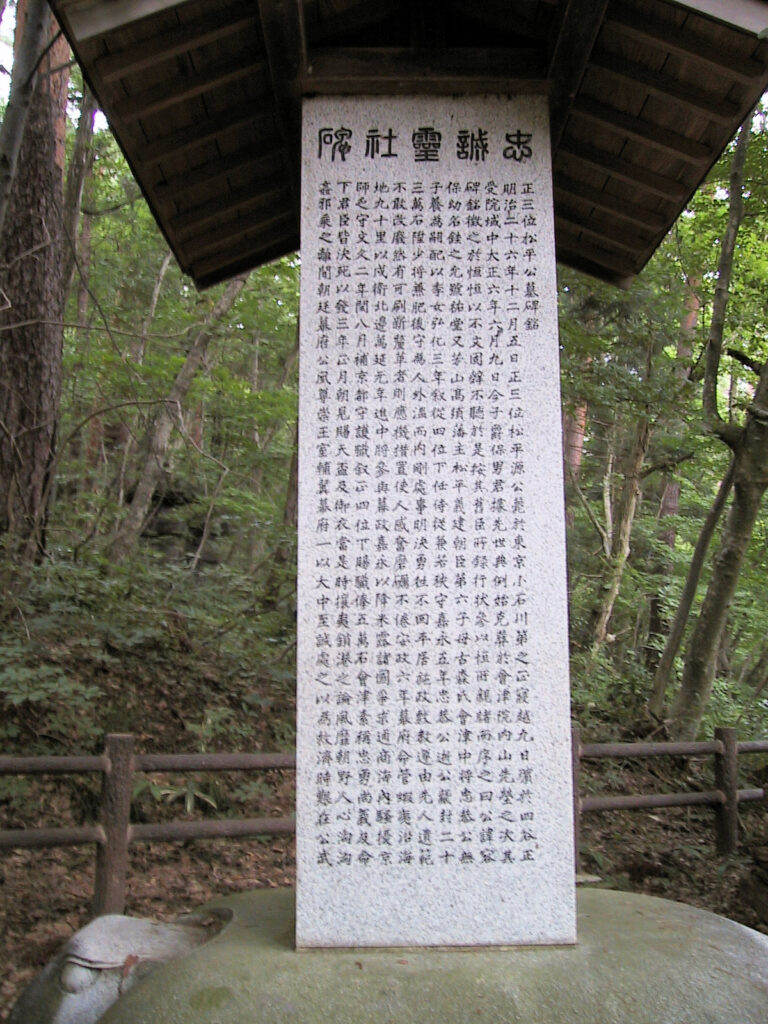 忠誠霊社碑
正三位松平公墓碑銘
明治二十六年十二月五日正三位松平源公薨於東京小石川第之正寝越九日濱於四谷正
受院域中大正六年六月九日令子爵保男君據先世典例始克葬於會津院内山先塋之次其
碑銘徴之於恒恒以不文固辭不聽於是按其舊臣所録行状參以恒所親睹而序之曰公諱容
保幼名銈之允號祐堂又芳山髙須藩主松平義建朝臣第六子母古森氏會津中將忠恭公無
子養為嗣配以季女弘化三年叙從四位下任侍從兼若狭守嘉永五年忠恭公逝公襲封二十
三萬石陞少將兼肥後守為人外温而内剛處事明決勇往不回平居施政敷教遵由先人遺範
不敢改廢然有可刷新釐革者則應機措置使人感奮磨礪不倦安政六年幕府命管蝦夷沿海
地九十里以戍衛北邊萬延元年進中將參與幕政嘉永以降米露諸國爭求通商海内騒擾京
師乏守文久二年閏八月補京都守護職叙正四位下賜職俸五萬石會津素稱忠勇尚義及命
下君臣皆決死以發三年正月朝見賜天盃及御衣當是時攘夷鎖港之論風靡朝野人心洶洶
姦邪乗之離間朝廷幕府公夙尊崇王室輔翼幕府一以大中至誠處之以為救濟時艱在公武